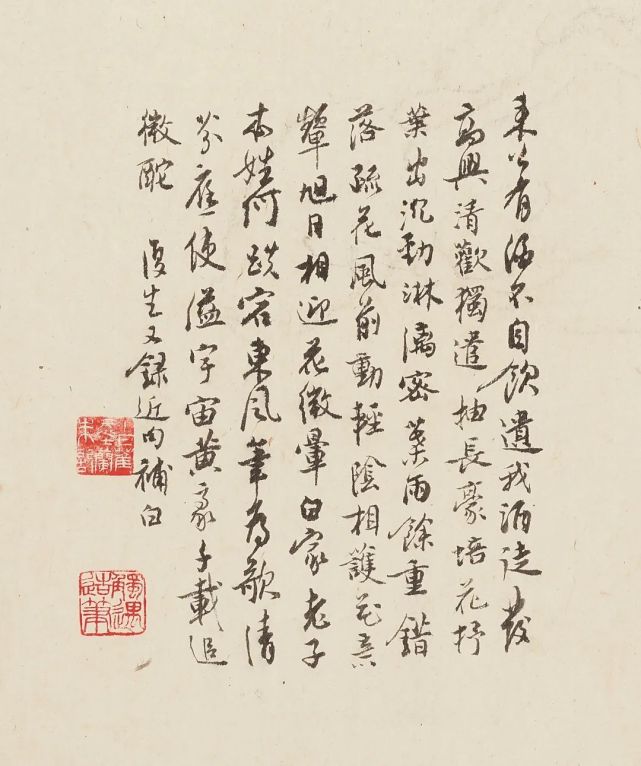 来公有酒不自飲遺我酒徒發
高興清歡獨遣抽長豪蟠花抒
葉出沉勁淋漓密葉雨餘重錯
落疏花風前動輕陰相護花意
犟旭日相迎花微暈白家老子
本姓何談容東風筆為歌清
芬應使溢宇宙黄豪千載追
微酡 復生又錄近句補白